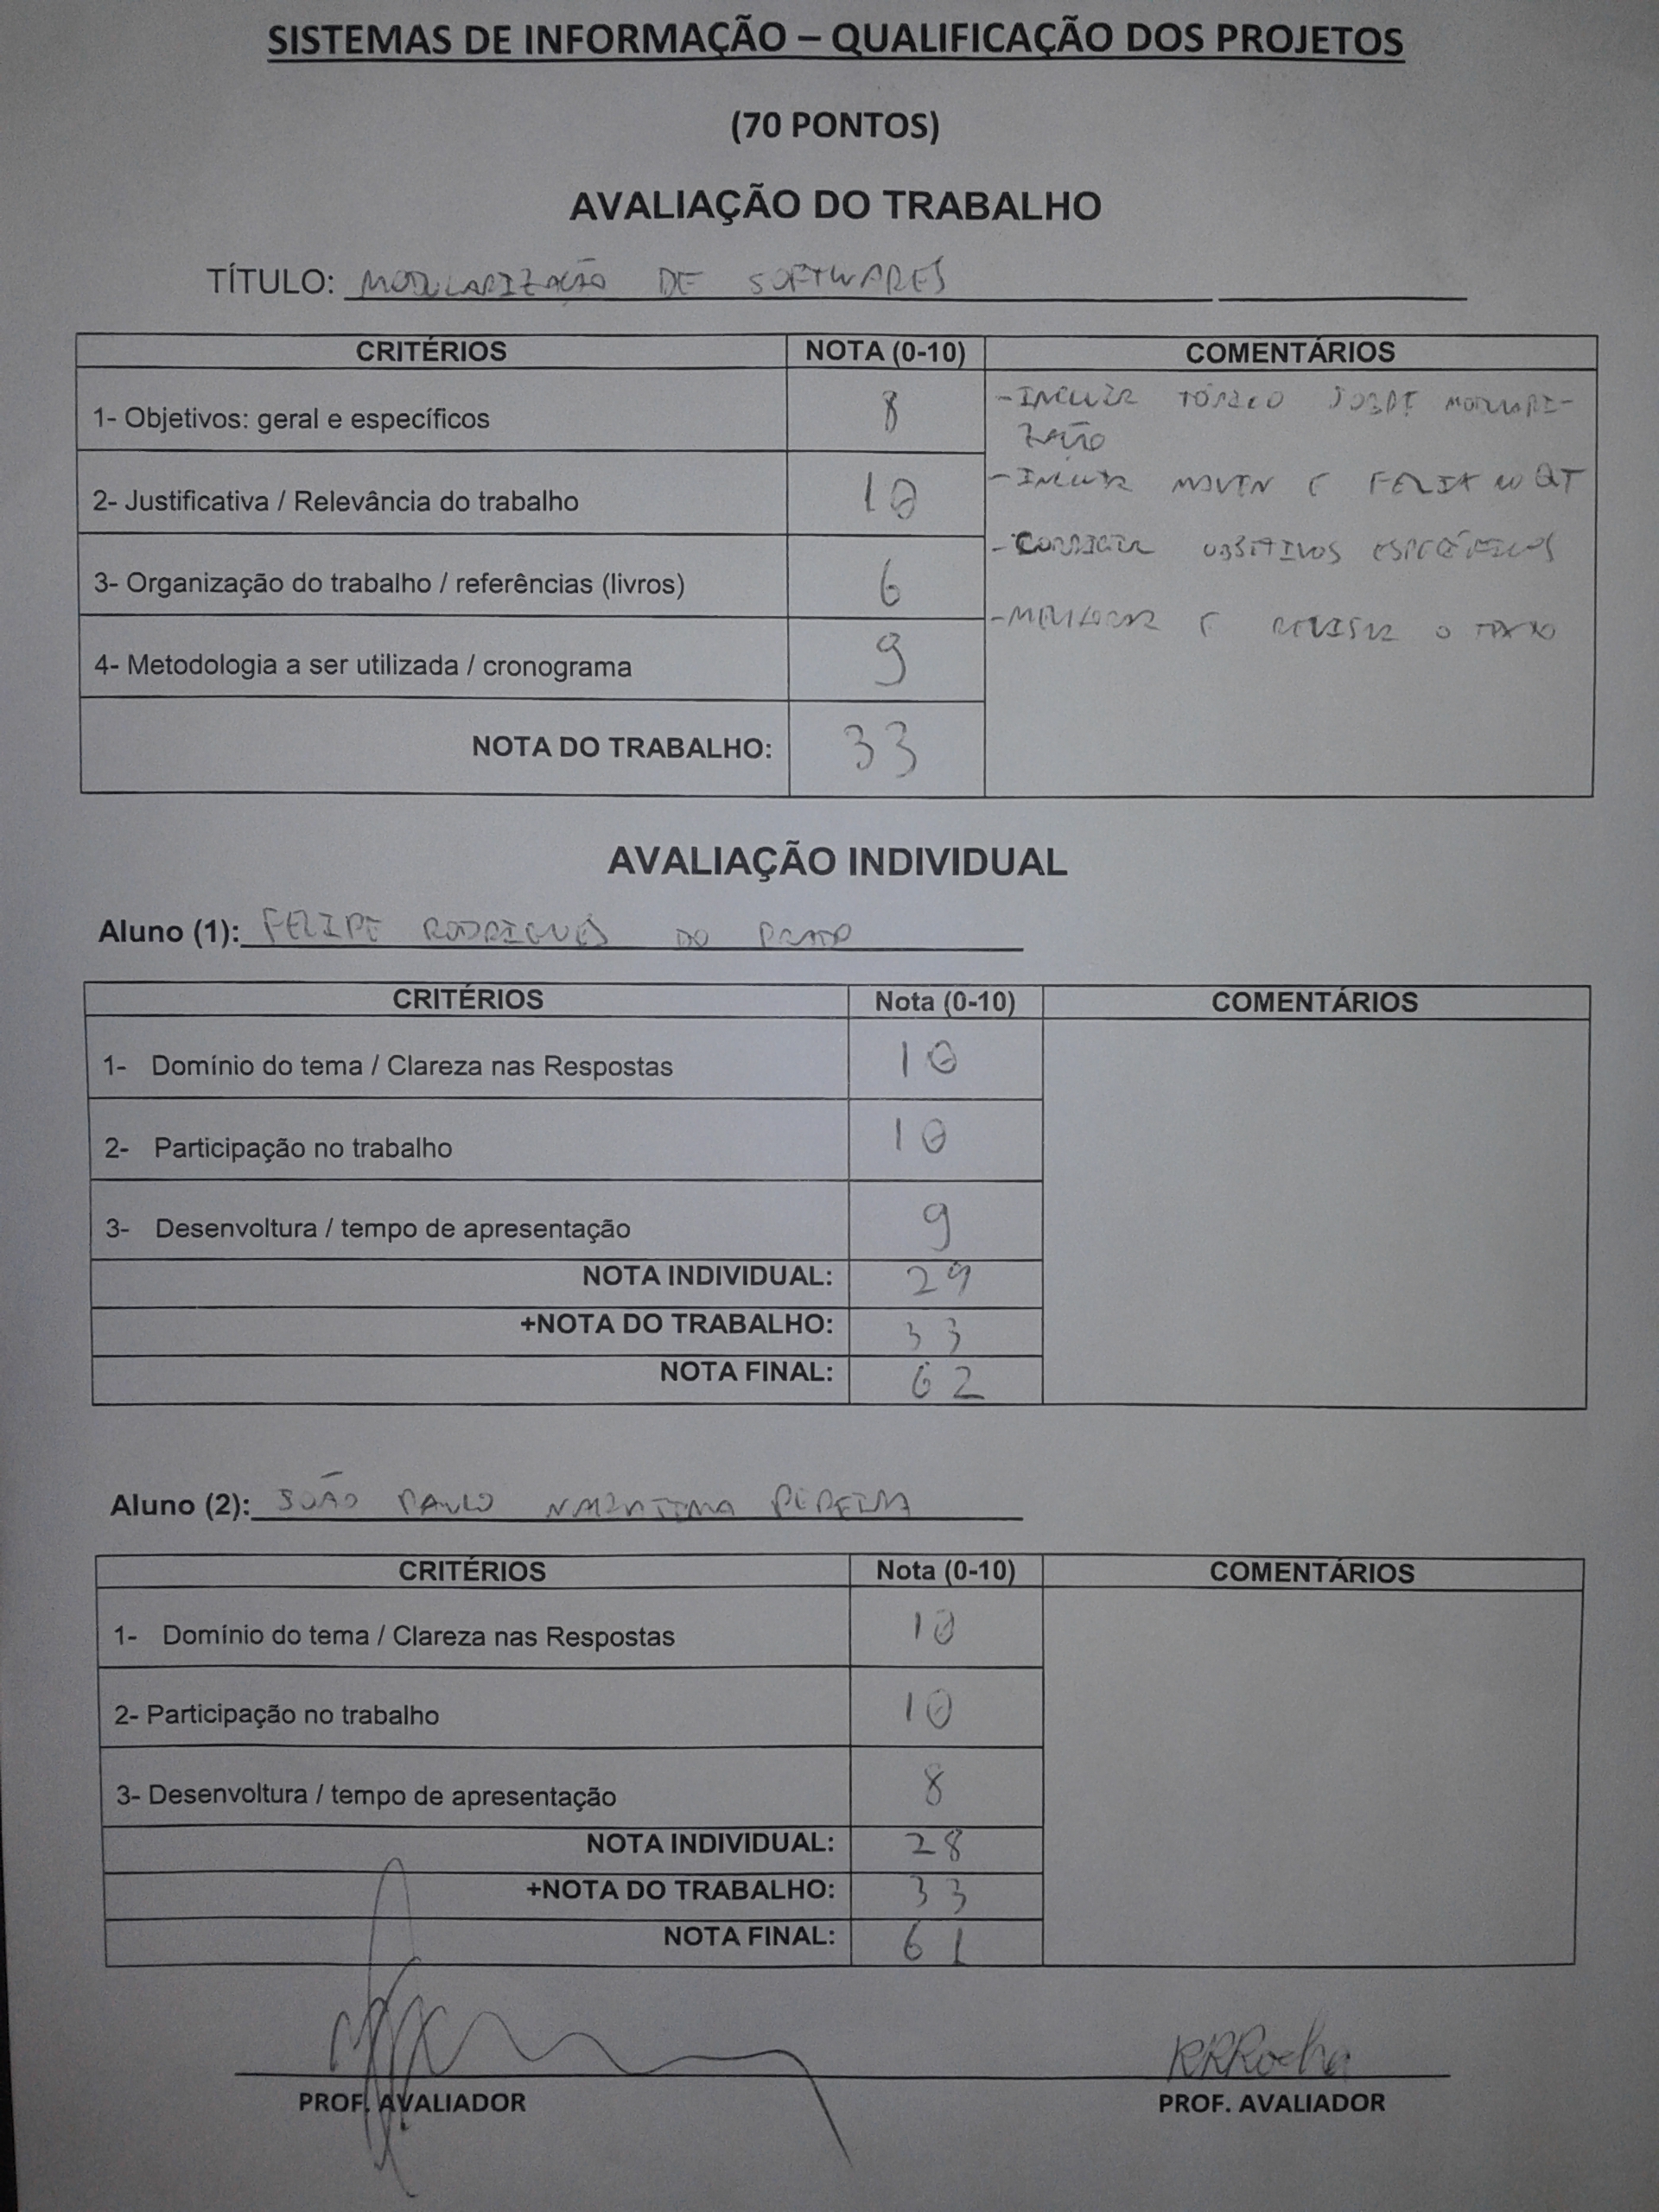 SISTEMAS DE INFORMAÇÃO – QUALIFICAÇÃO DOS PROJETOS
(70 PONTOS)
AVALIAÇÃO DO TRABALHO
TÍTULO: MODULARIZAÇÃO DE SOFTWARES
CRITÉRIOS NOTA (0-10) COMENTÁRIOS
1- Objetivos: geral e específicos 8
- INCLUIR TÓPICO SOBRE MODULARI-
ZAÇÃO
2- Justificativa / Relevância do trabalho 10
- INCLUIR MAVEN E FELIX NO QT
3- Organização do trabalho / referências (livros) 6
- CORRIGIR OBJETIVOS ESPECÍFICOS
4- Metodologia a ser utilizada / cronograma 9
- MELHORAR E REVISAR O TEXTO
NOTA DO TRABALHO: 33
AVALIAÇÃO INDIVIDUAL
Aluno (1): FELIPE RODRIGUES DO PRADO
CRITÉRIOS Nota (0-10) COMENTÁRIOS
1- Domínio do tema / Clareza nas Respostas 10
2- Participação no trabalho 10
3- Desenvoltura / tempo de apresentação 9
NOTA INDIVIDUAL: 29
+NOTA DO TRABALHO: 33
NOTA FINAL: 62
Aluno (2): JOÃO PAULO PEREIRA
CRITÉRIOS Nota (0-10) COMENTÁRIOS
1- Domínio do tema / Clareza nas Respostas 10
2- Participação no trabalho 10
3- Desenvoltura / tempo de apresentação 8
NOTA INDIVIDUAL: 28
+NOTA DO TRABALHO: 33
NOTA FINAL: 61
RRRocha
PROF. AVALIADOR PROF. AVALIADOR